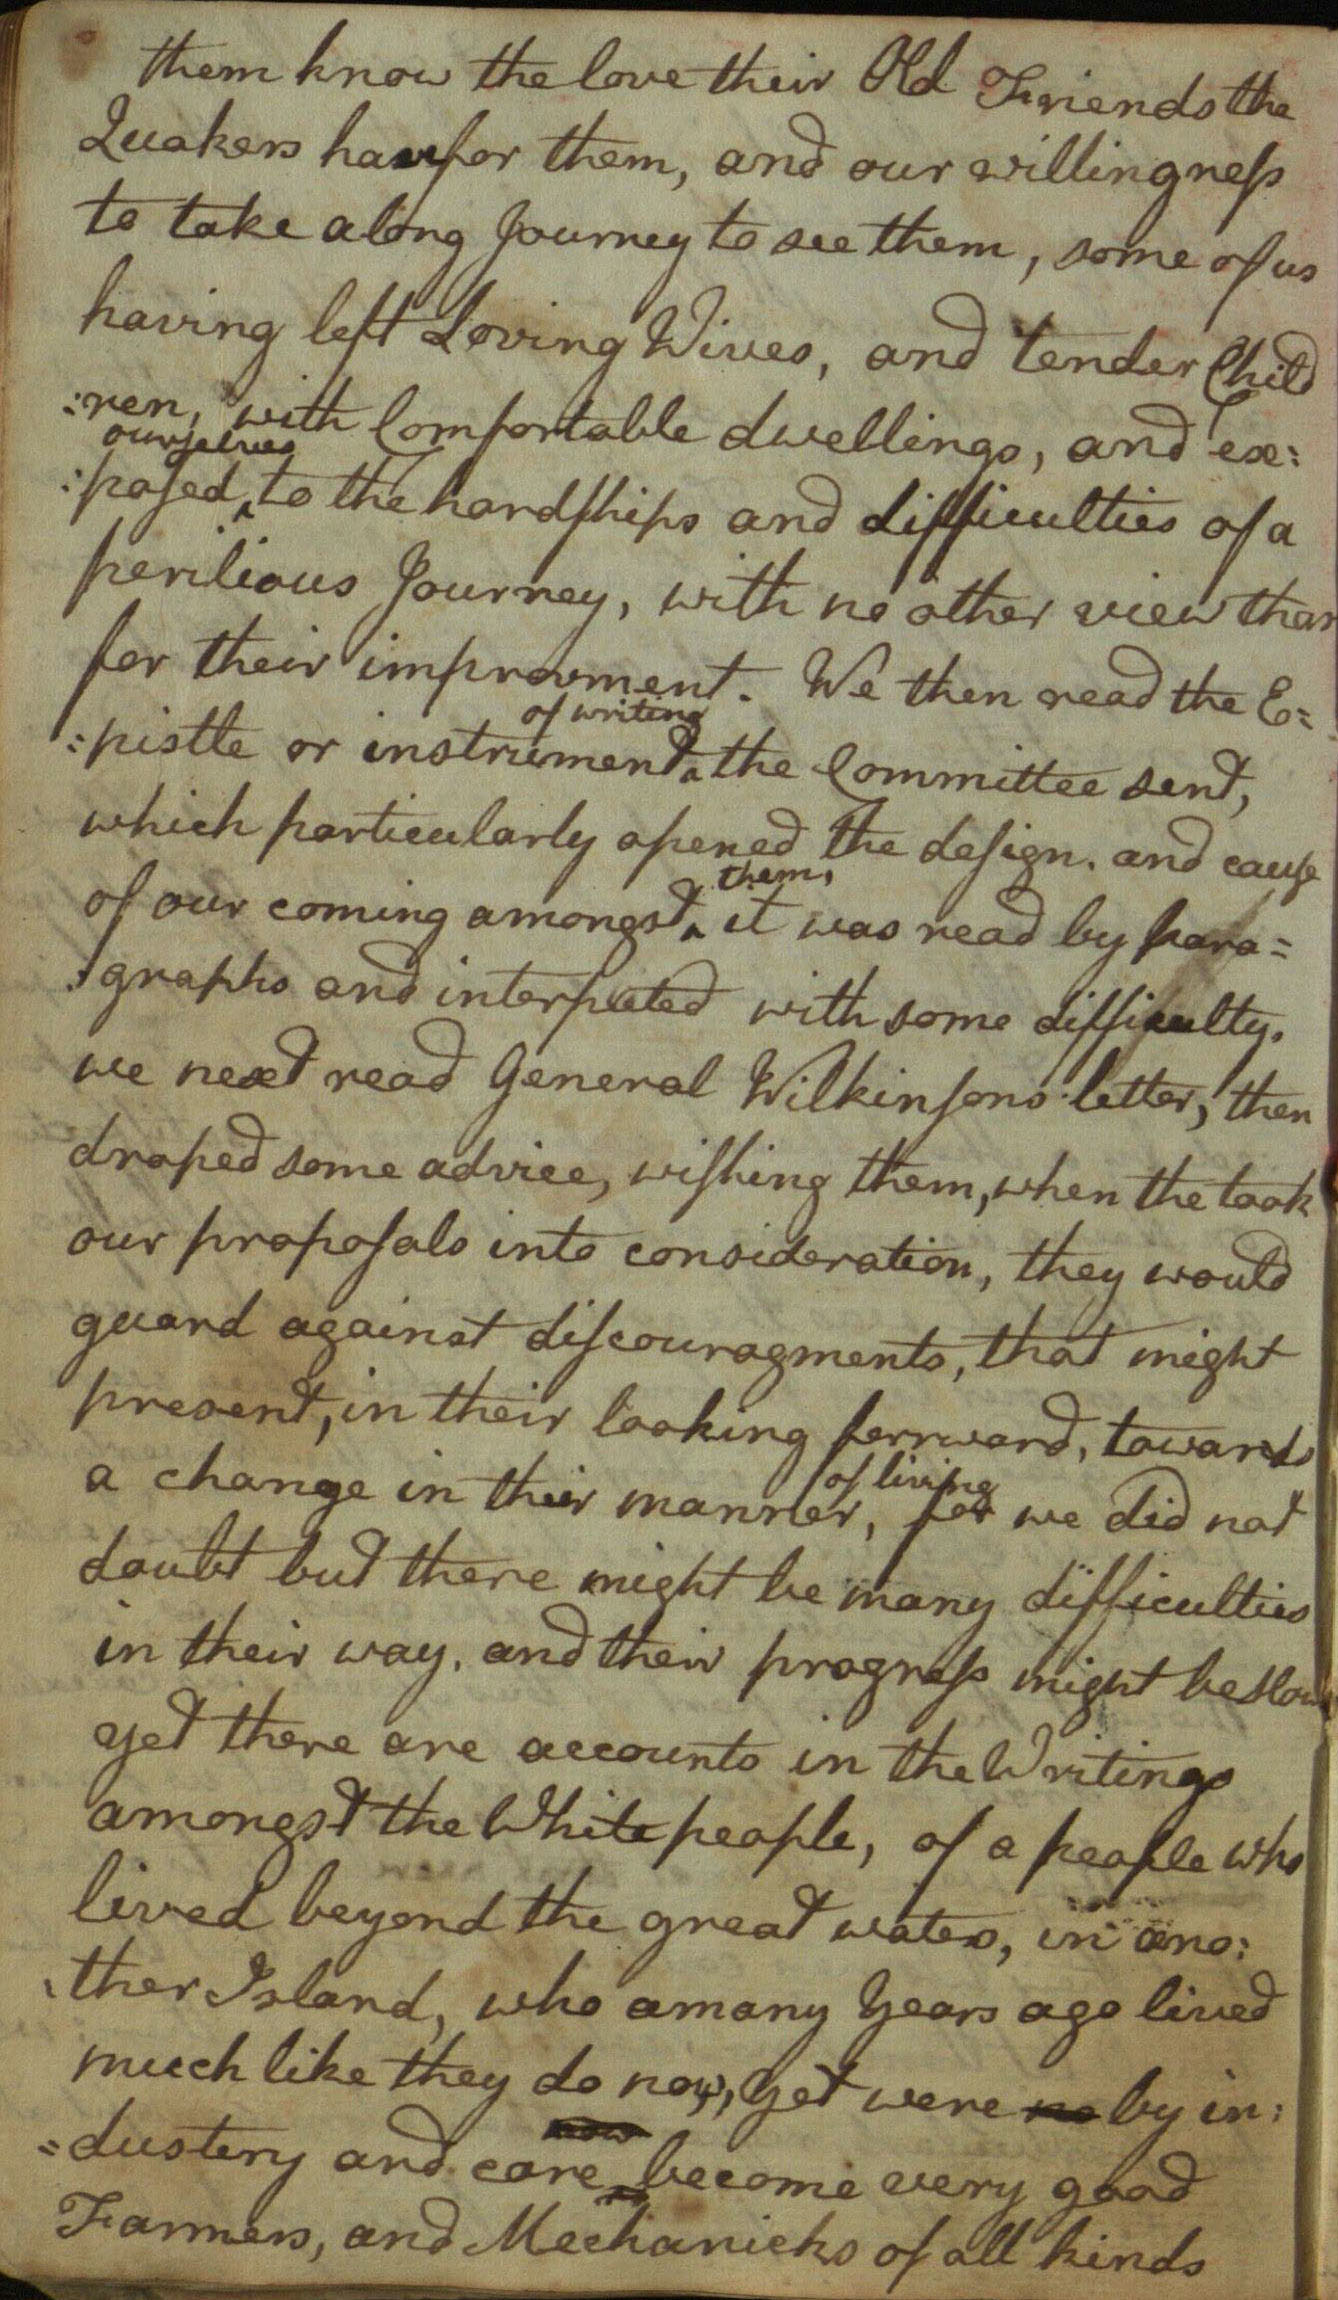 them know the love their Old Friends the
Quakers have for them, and our willingness
to take along Journey to see them, some of us
having left Loving Wives, and tender Child
:ren, with Comfortable dwellings, and ex:
ourselves
:posed ‸ to the hardships and difficulties of a
perilious Journey, with no other view than
for their improvment. We then read the E=
of writing
:pistle or instrument ‸ the Committee sent,
which particularly opened the design. and cause
them,
of our coming amongst ‸ it was read by para=
:graphs and interpeted with some difficulty.
we next read General Wilkinsons letter, then
droped some advice, wishing them, when the took
our proposals into consideration, they would
guard against discouragments, that might
present, in their looking forrward, towards
of living
a change in their manner, for we did not
doubt but there might be many difficulties
in their way, and their progress might be slow
yet there are accounts in the Writings
amongst the White people, of a people who
lived beyond the great water, in ano:
:ther Island, who amany Years ago lived
much like they do now, yet were no by in:
now
=dustery and care become very good
Farmers, and Mechanicks of all kinds